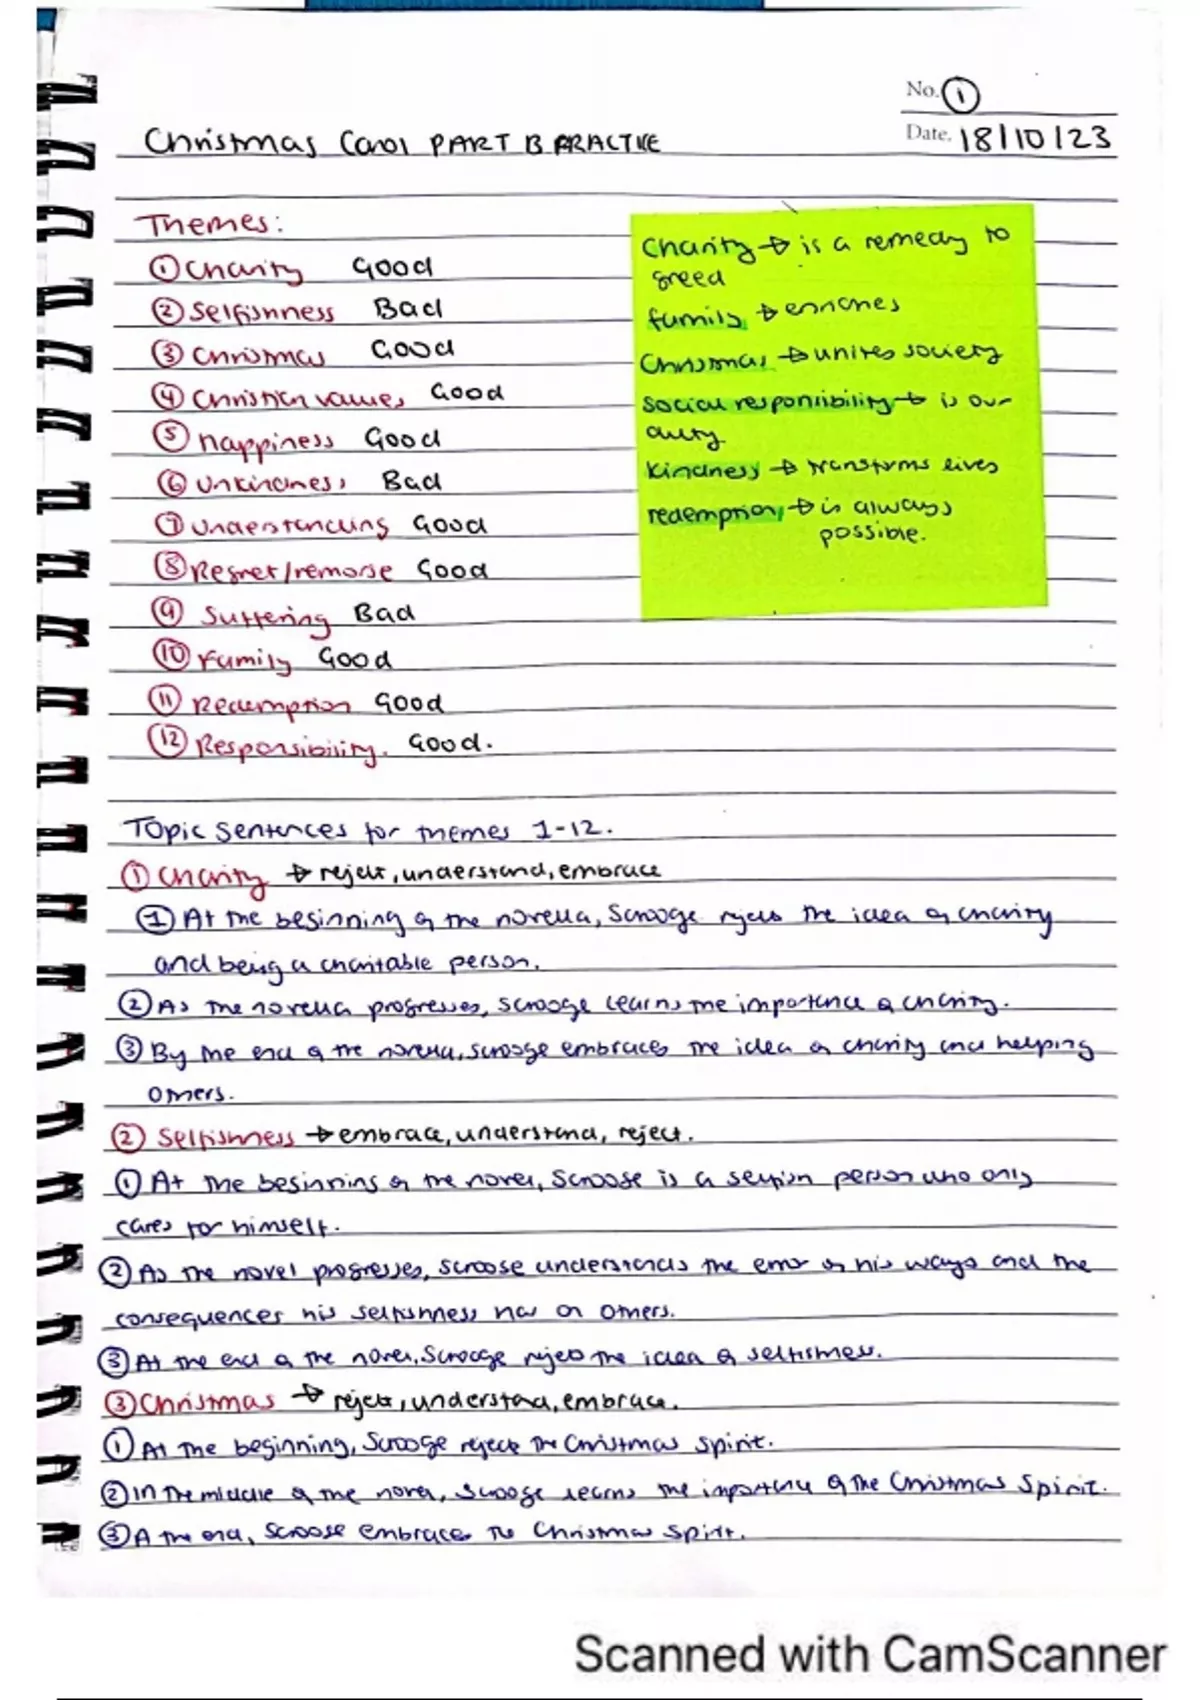 No. 1
Christmas Carol PART B PRACTICE
Date. 18/10/23
Themes:
① Charity Good
② Selfishness Bad
③ Christmas Good
④ Christian values Good
⑤ happiness Good
⑥ Unkindness Bad
⑦ Understanding Good
⑧ Regret/remorse Good
⑨ Suffering Bad
⑩ Family Good
⑪ Redemption Good
⑫ Responsibility. Good.
Charity → is a remedy to
greed
family → enriches
Christmas → unites society
social responsibility → is our
duty
kindness → transforms lives
redemption → is always
possible.
Topic Sentences for themes 1-12.
① Charity → reject, understand, embrace
① At the beginning of the novella, Scrooge rejects the idea of charity
and being a charitable person.
② As the novella progresses, Scrooge learns the importance of charity.
③ By the end of the novella, Scrooge embraces the idea of charity and helping
others.
② Selfishness → embrace, understand, reject.
① At the beginning of the novel, Scrooge is a selfish person who only
cares for himself.
② As the novel progresses, Scrooge understands the error of his ways and the
consequences his selfishness has on others.
③ At the end of the novel, Scrooge rejects the idea of selfishness.
③ Christmas → reject, understand, embrace.
① At the beginning, Scrooge rejects the Christmas spirit.
② In the middle of the novel, Scrooge learns the importance of the Christmas Spirit.
③ A the end, Scrooge embraces the Christmas Spirit.
Scanned with CamScanner